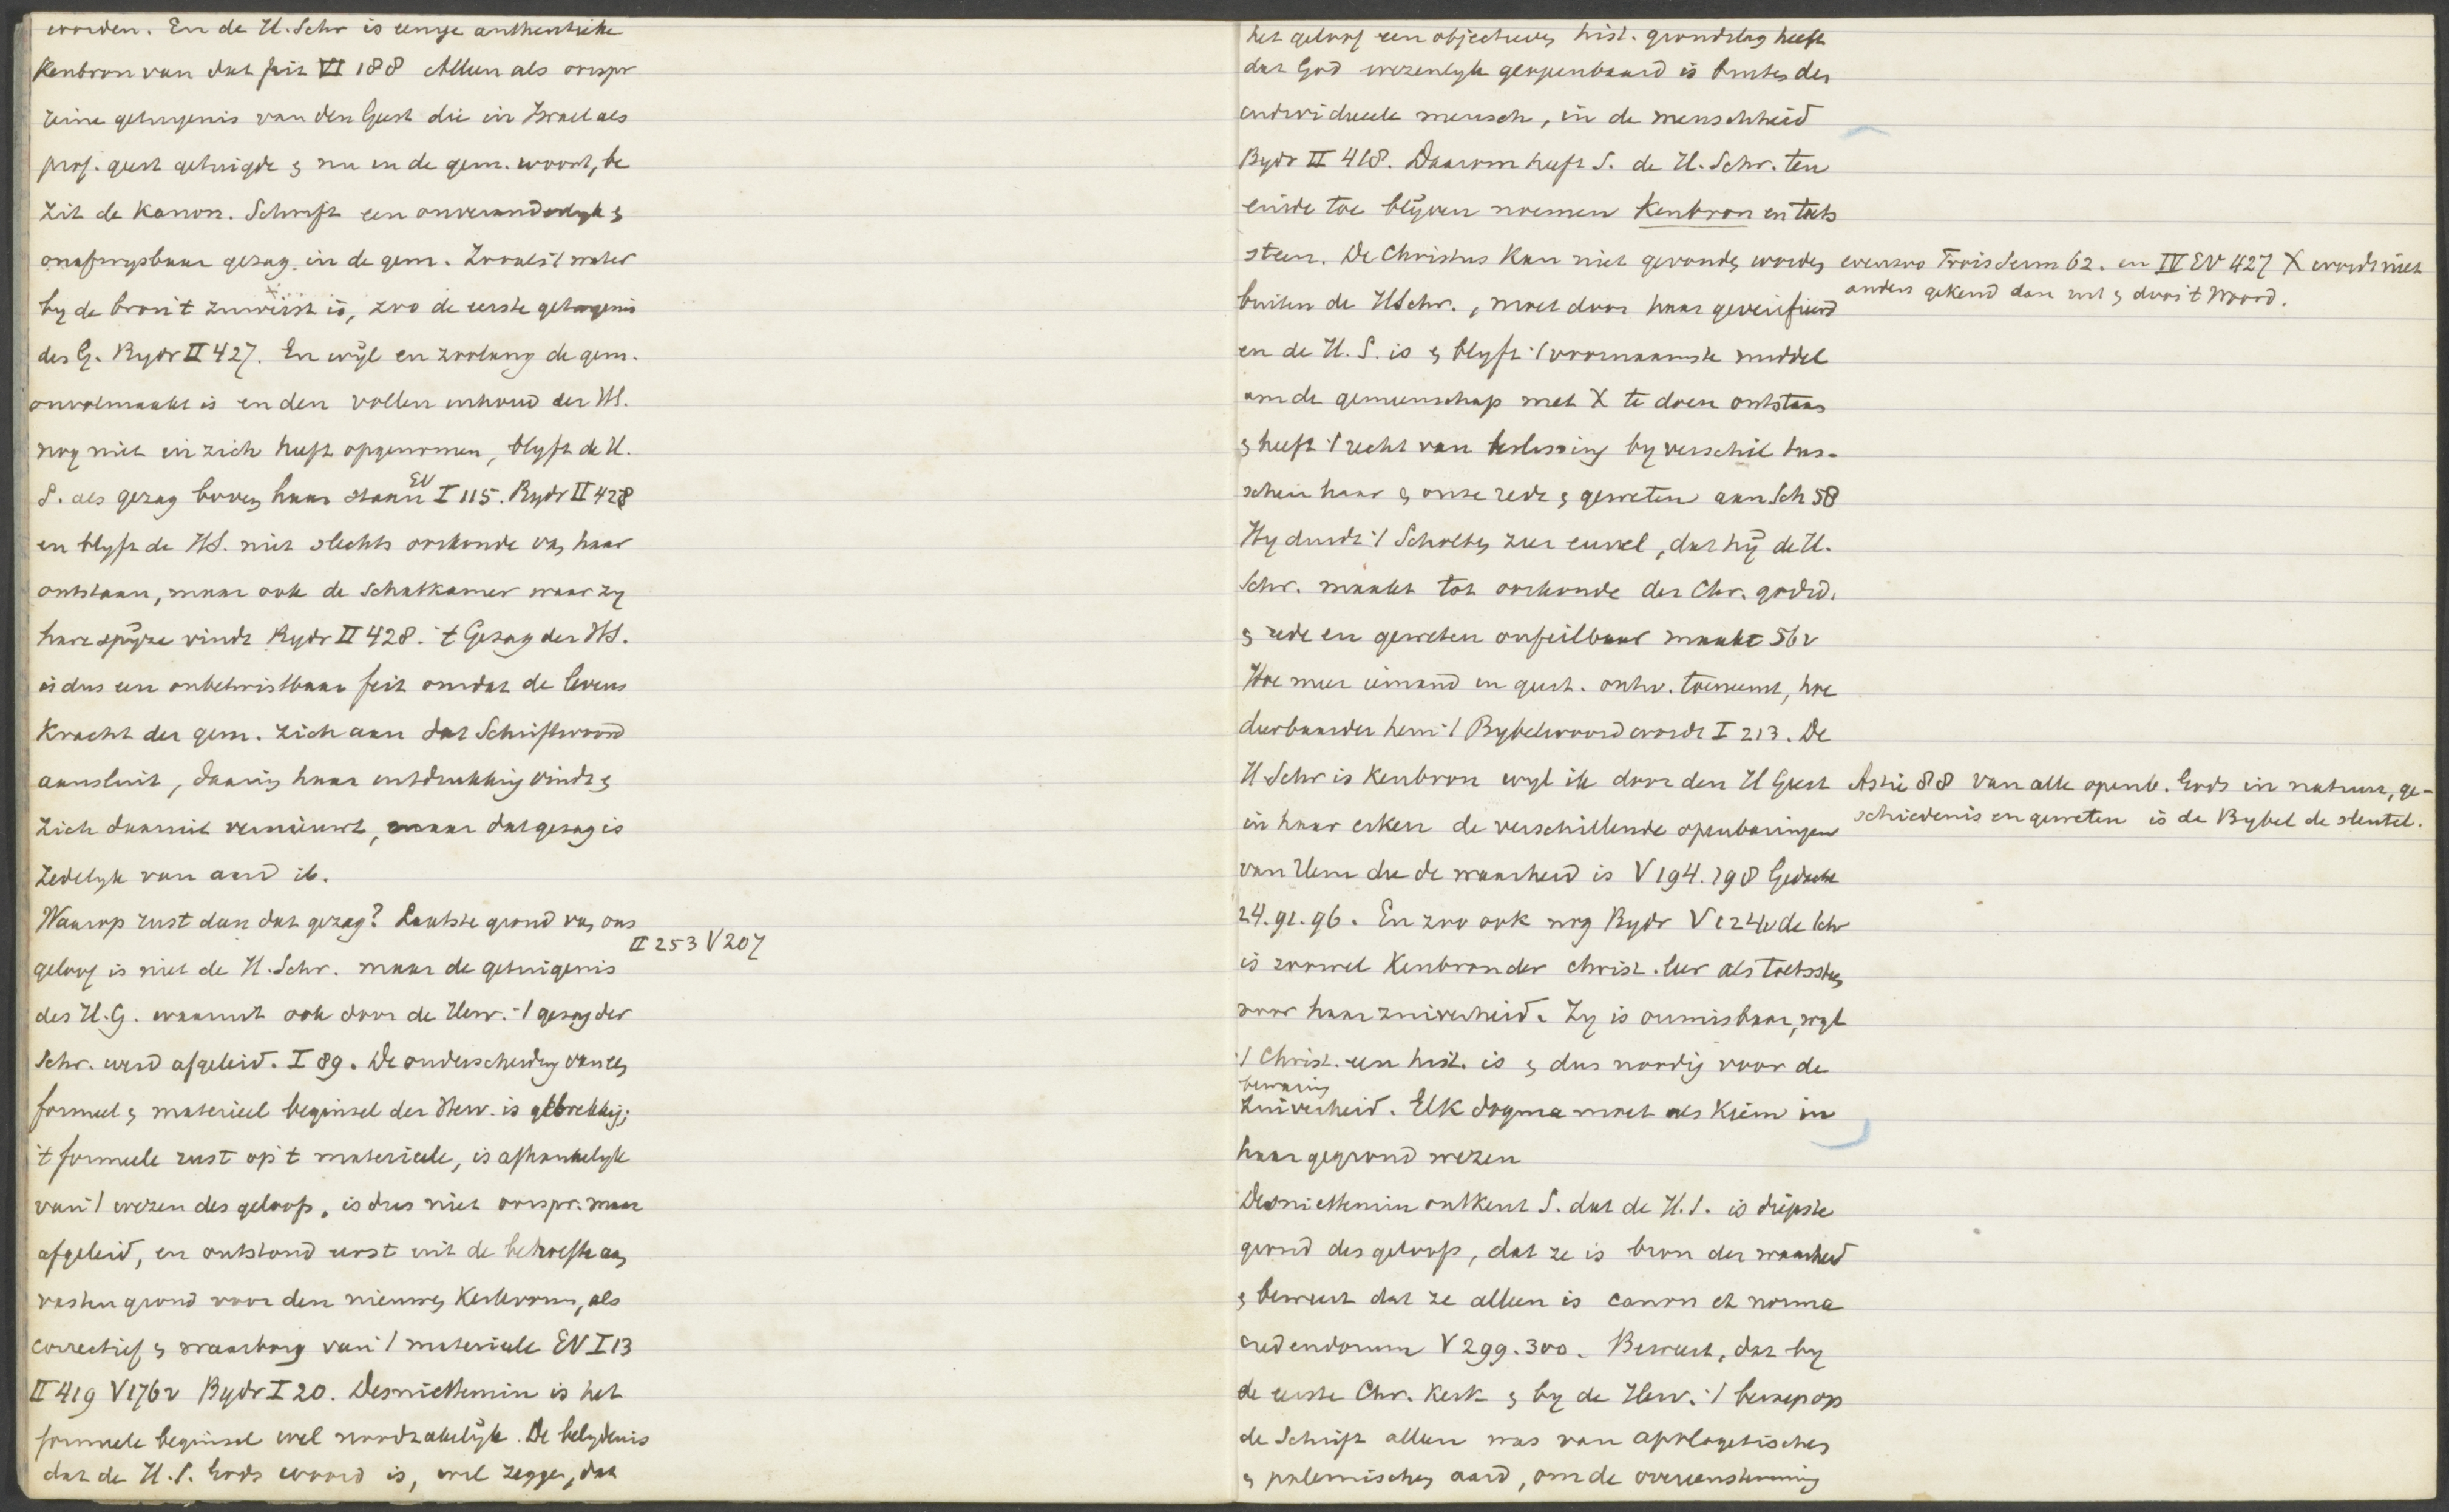 worden. En de H. Schr is eenige authentieke
Kenbron van dat feit VI 188 Alleen als oorspr
reine getuigenis van den Geest die in Israel als
prof. geest getuigde & nu in de gem. woont, be
zit de Kanon. Schrift een onveranderlyk &
onafwysbaar gezag in de gem. Zooals 't water
by de bron 't zuiverst is, zoo de eerste getuigenis
des G. Bydr II 427. En wyl en zoolang de gem.
onvolmaakt is en den vollen inhoud der HS.
nog niet in zich heeft opgenomen, blyft de H.
S. als gezag boven haar staan EV I 115. Bydr II 428
en blyft de HS. niet slechts oorkonde van haar
ontstaan, maar ook de schatkamer waar zy
hare spyze vindt Bydr II 428. 't Gezag der HS.
is dus een onbetwistbaar feit omdat de levens
kracht der gem. zich aan dat Schriftwoord
aansluit, daarin haar uitdrukking vindt &
zich daaruit vernieuwt, maar dat gezag is
zedelyk van aard ib.
Waarop rust dan dat gezag? Laatste grond van ons
II 253 V 207
geloof is niet de H. Schr. maar de getuigenis
des H.G. waaruit ook door de Herv. 't gezag der
Schr. werd afgeleid. I 89. De onderscheiding van een
formeel & materieel beginsel der Herv. is gebrekkig;
't formeele rust op 't materieele, is afhankelyk
van 't wezen des geloofs, is dus niet oorspr. maar
afgeleid, en ontstond eerst uit de behoefte aan
vasten grond voor den nieuwen Kerkvorm, als
correctief & waarborg van 't materieele EV I 13
II 419 V 176v Bydr I 20. Desniettemin is het
formeele beginsel wel noodzakelyk. De belydenis
dat de H.S. Gods woord is, wil zeggen, dat
het geloof een objectieven hist. grondslag heeft
dat God wezenlyk geopenbaard is buiten den
individueele mensch, in de menschheid
Bydr II 418. Daarom heeft S. de H. Schr. ten
einde toe blyven noemen Kenbron en toets
steen. De Christus kan niet gevonden worden
evenzoo Trois Serm 62. en IV EV 427 X wordt niet
anders gekend dan uit & door 't Woord.
buiten de HSchr., moet door haar geverifieerd
en de H.S. is & blyft 't voornaamste middel
om de gemeenschap met X te doen ontstaan
& heeft 't recht van beslissing by verschil tus-
schen haar & onze rede & geweten aan Sch 58
Hy duidt 't Scholten zeer euvel, dat hy de H.
Schr. maakt tot oorkonde der Chr. godsd.
& rede en geweten onfeilbaar maakt 56v
Hoe meer iemand in geest. ontw. toeneemt, hoe
dierbaarder hem 't Bybelwoord wordt I 213. De
H Schr is Kenbron wyl ik door den H Geest
Astié 88 van alle openb. Gods in natuur, ge-
schiedenis en geweten is de Bybel de sleutel.
in haar erken de verschillende openbaringen
van Hem die de waarheid is V 194. 198 Gedachte
24. 91. 96. En zoo ook nog Bydr V 124v de Schr
is zoowel Kenbron der christ. leer als toetssteen
voor haar zuiverheid. Zy is onmisbaar, wyl
't Christ. een hist. is & dus noodig voor de
bewaring
zuiverheid. Elk dogma moet als Kiem in
haar gegrond wezen
Desniettemin ontkent S. dat de H.S. is diepste
grond des geloofs, dat ze is bron der waarheid
& beweert dat ze alleen is canon et norma
credendorum V 299. 300. Beweert, dat by
de eerste Chr. Kerk & by de Herv. 't beroep op
de Schrift alleen was van apologetischen
& polemischen aard, om de overeenstemming